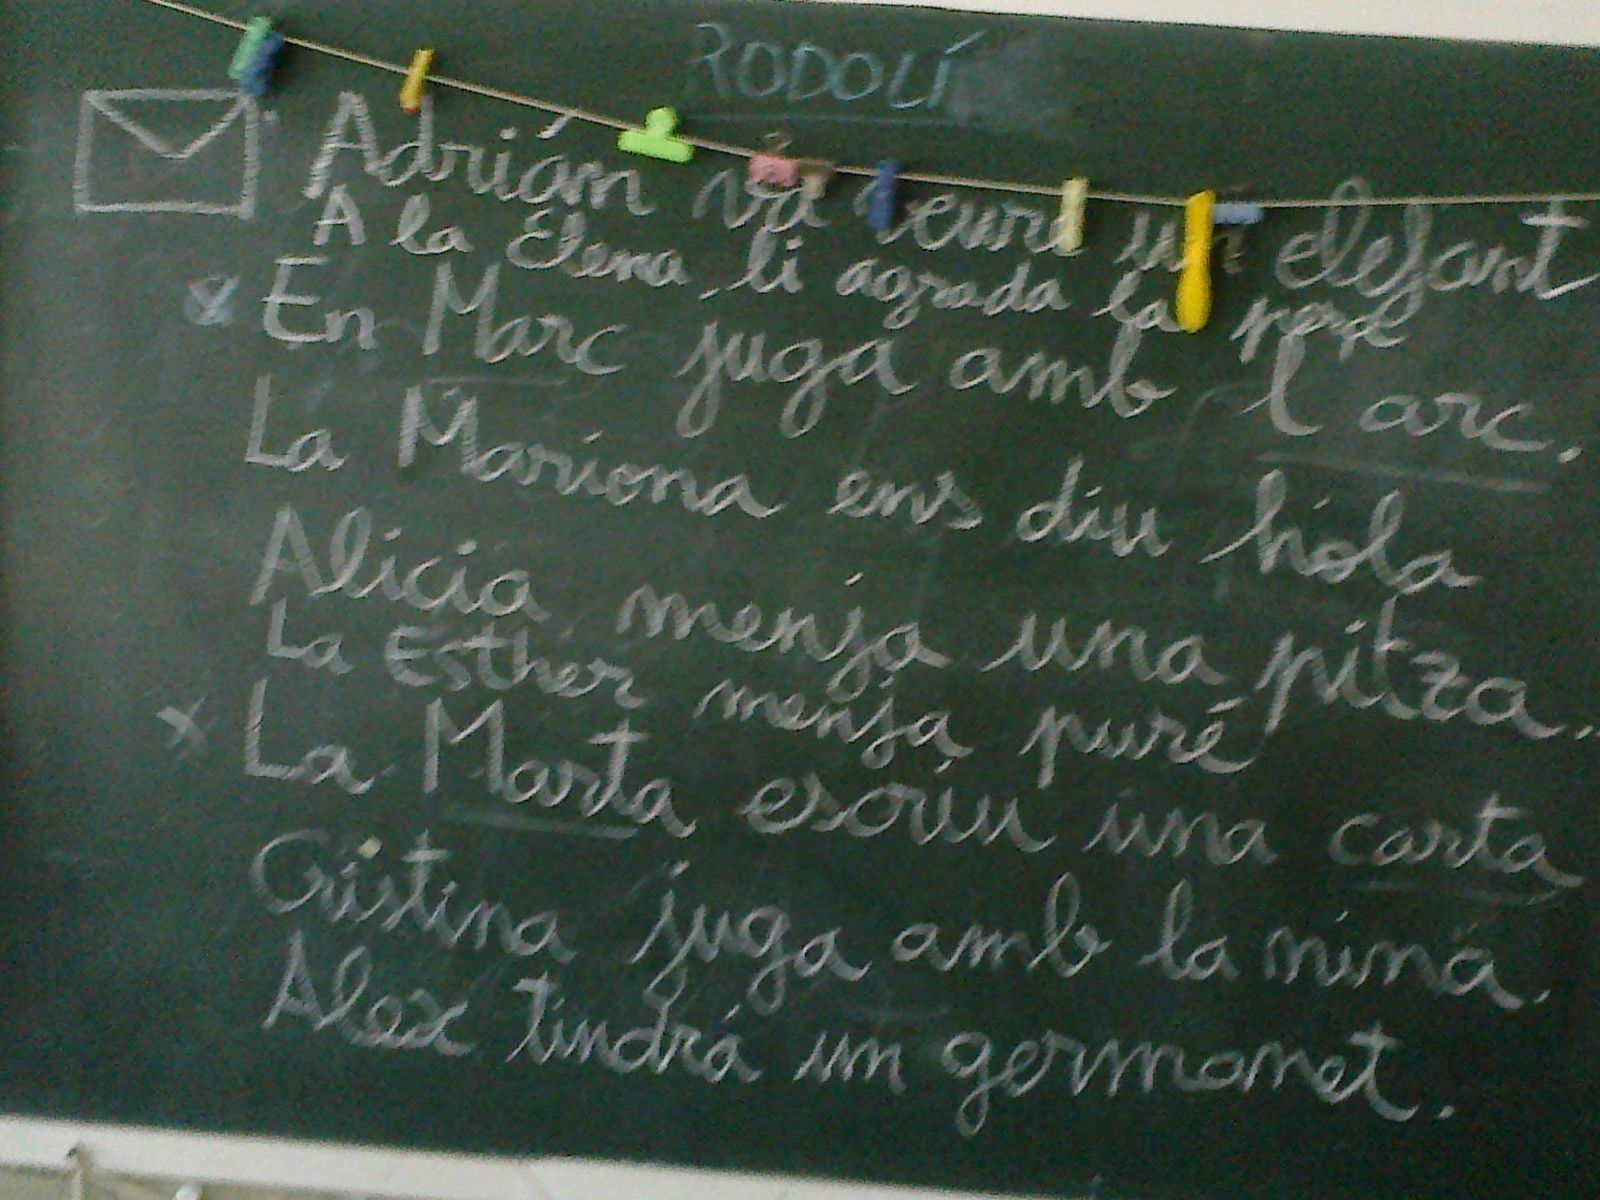 RODOLÍ
Adrián va veure un elefant
A la Elena li agrada la pera
En Marc juga amb l'arc.
La Mariona ens diu hola
Alicia menja una pitza...
La Esther menja puré
La Marta escriu una carta
Cristina juga amb la nina.
Alex tindrá un germanet.